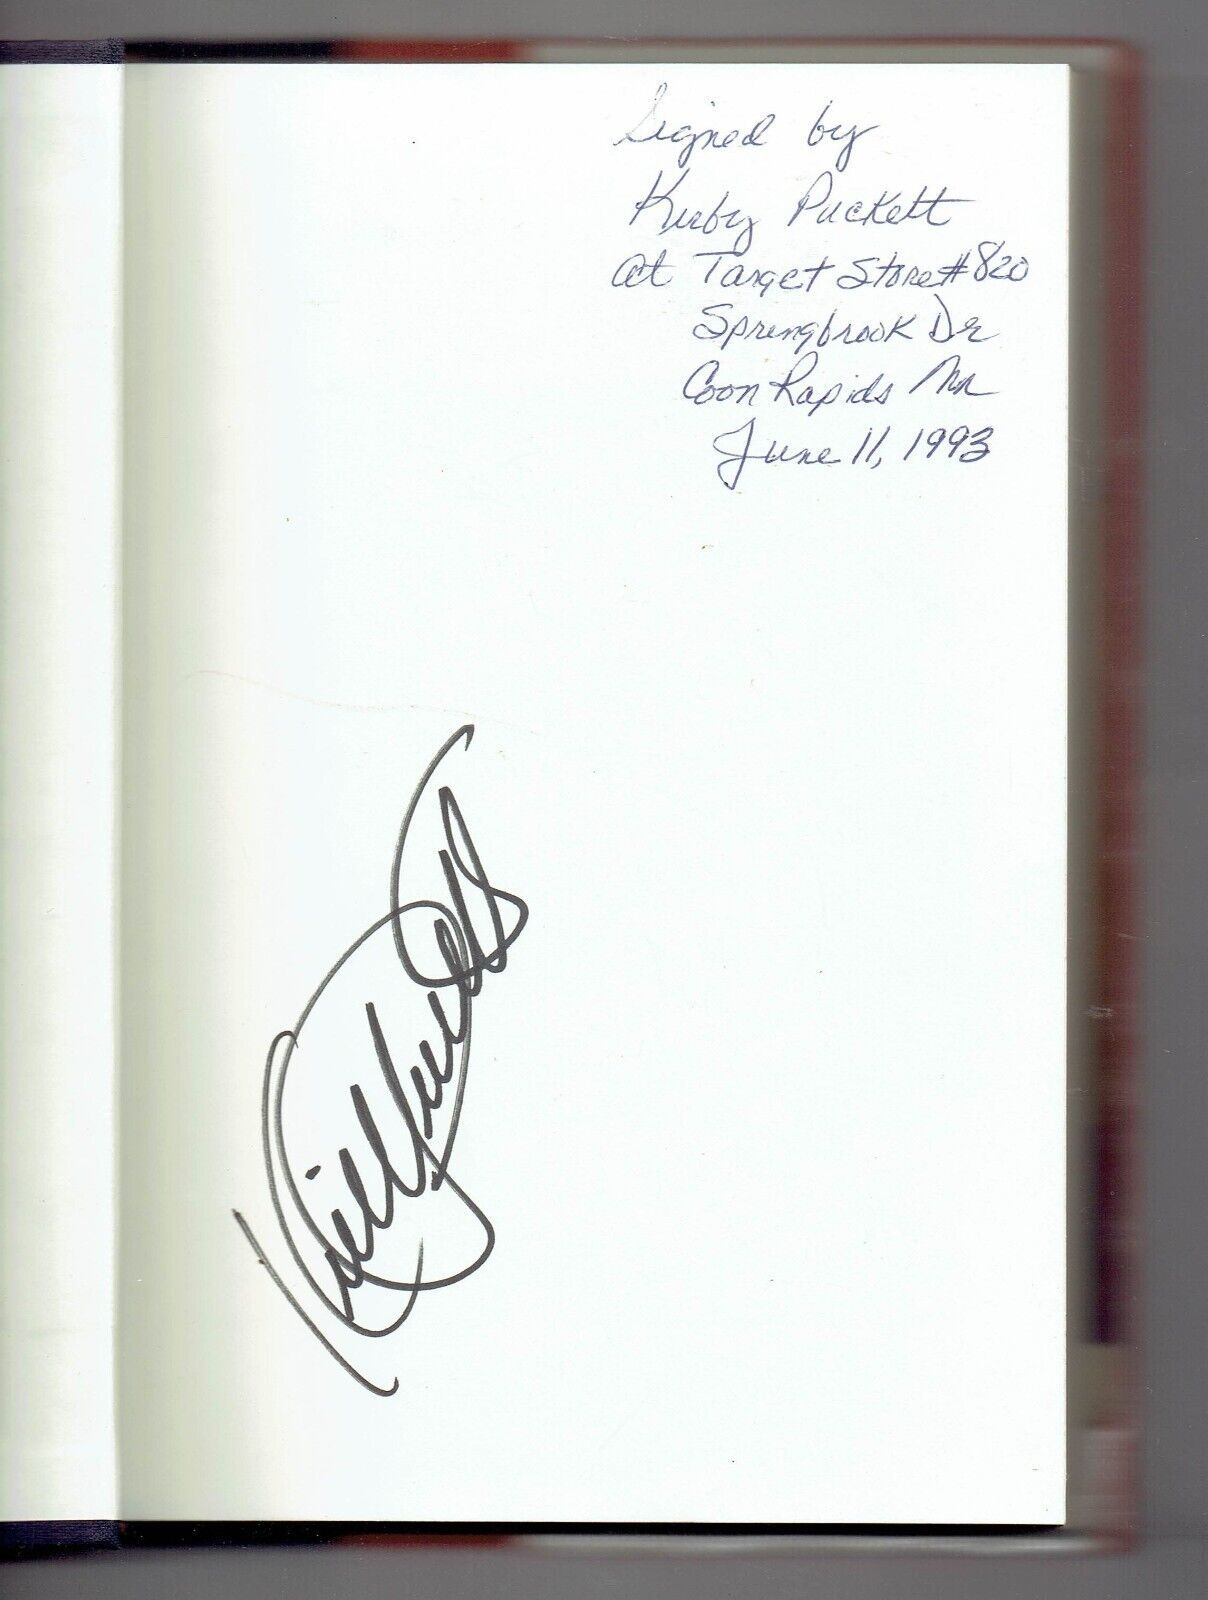 Signed by
Kirby Puckett
at Target Store #820
Springbrook Dr
Coon Rapids Mn
June 11, 1993
Kirby Puckett